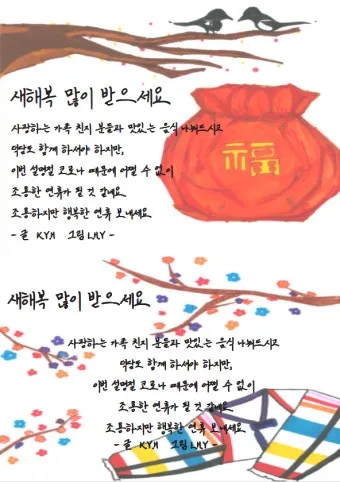 새해복 많이 받으세요
사랑하는 가족 친지 분들과 맛있는 음식 나눠드시고
덕담도 함께 하셔야 하지만,
이번 설명절 코로나 때문에 어쩔 수 없이
조용한 연휴가 될 것 같네요
조용하지만 행복한 연휴 보내세요
- 글 K.Y.H 그림 L.H.Y -
福
새해복 많이 받으세요
사랑하는 가족 친지 분들과 맛있는 음식 나눠드시고
덕담도 함께 하셔야 하지만,
이번 설명절 코로나 때문에 어쩔 수 없이
조용한 연휴가 될 것 같네요
조용하지만 행복한 연휴 보내세요
- 글 K.Y.H 그림 L.H.Y -